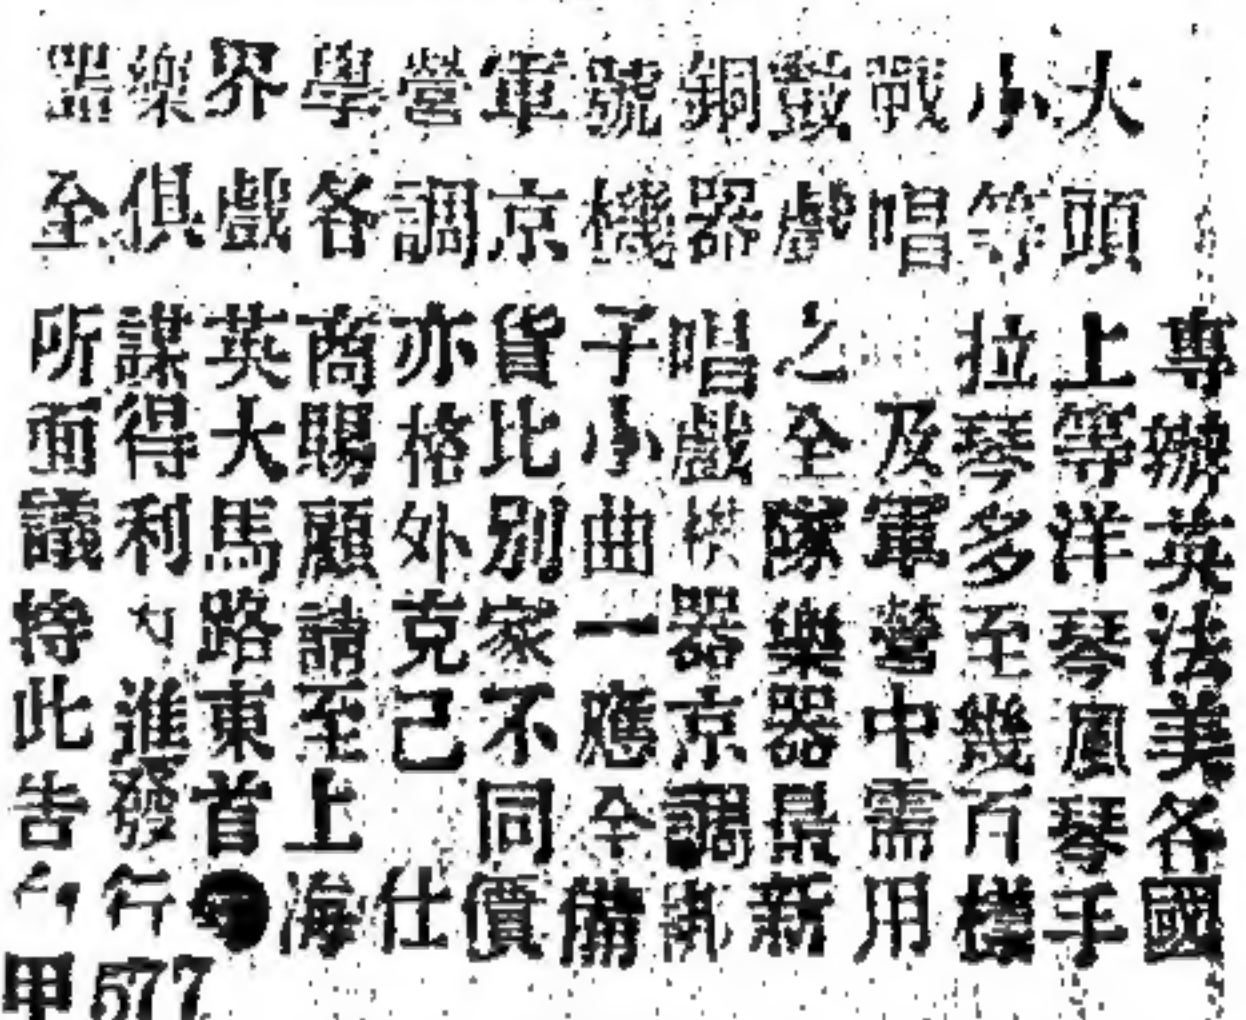 大小戰鼓銅號軍營學界樂器
頭等唱戲器機京調各戲俱全
專辦英法美各國
上等洋琴風琴手
拉琴多至幾百樣
及軍營中需用
之全隊樂器最新
唱戲機器京調梆
子小曲一應全備
貨比別家不同價
亦格外克己 仕
商賜顧請至上海
英大馬路東首
謀得利進發行
所面議特此告白
甲577